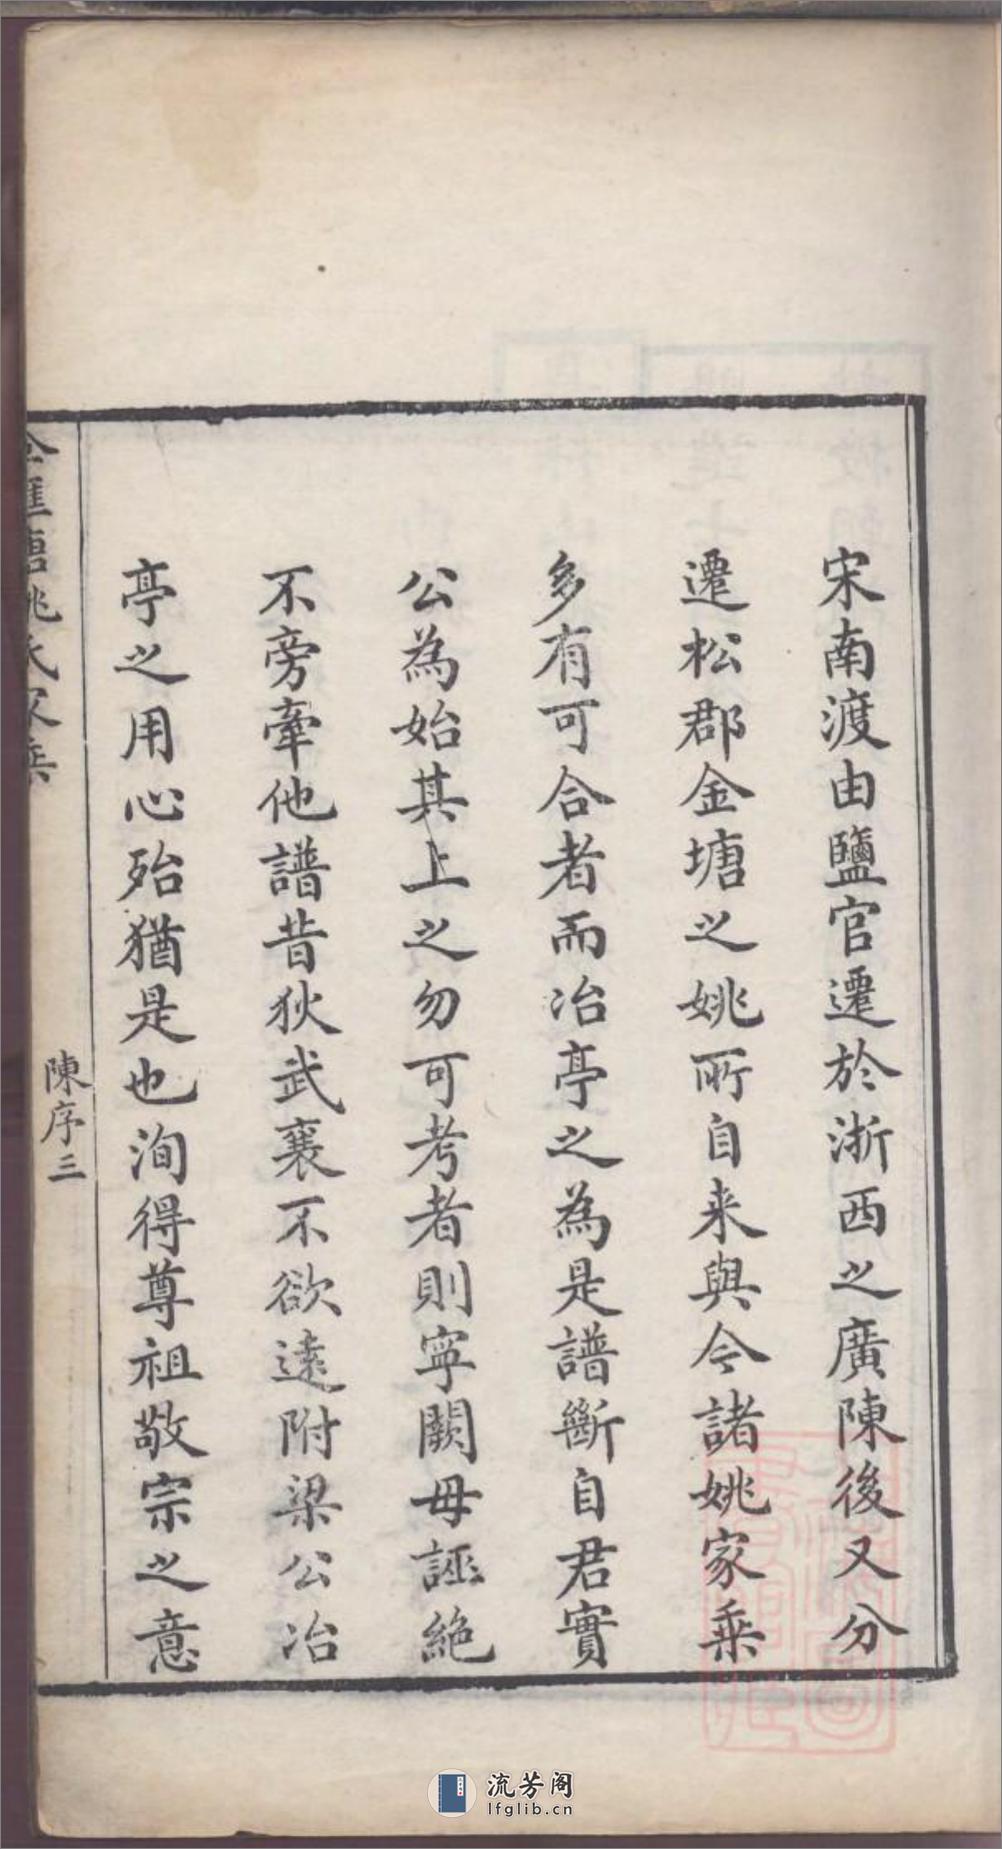 宋南渡由鹽官遷於浙西之廣陳後又分
遷松郡金塘之姚所自来與今諸姚家乗
多有可合者而冶亭之為是譜斷自君實
公為始其上之勿可考者則寧闕毋誣絶
不旁牽他譜昔狄武襄不欲遠附梁公冶
亭之用心殆猶是也洵得尊祖敬宗之意
姚氏家乗
陳序三
流芳阁
lfglib.cn